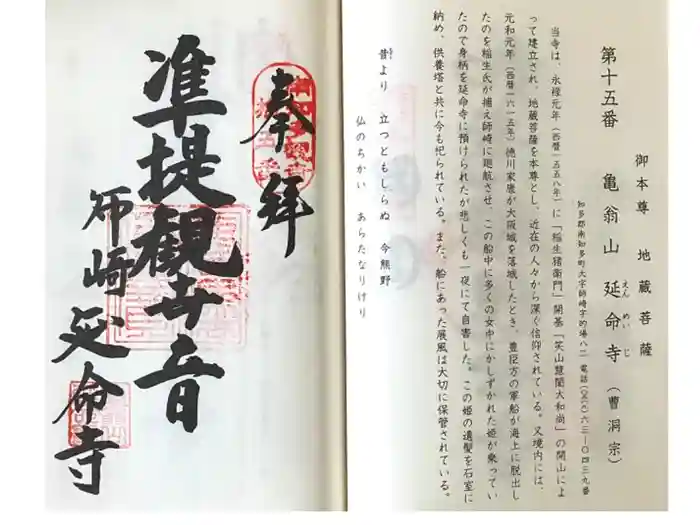 御本尊 地蔵菩薩
第十五番 亀翁山 延命寺（曹洞宗）
えんめいじ
知多郡南知多町大字師崎字的場八二 電話（〇五六九）六三ー〇四三九番
当寺は、永禄元年（西暦一五五八年）に「稲生猪衛門」開基「笑山慧誾大和尚」の開山によ
って建立され、地蔵菩薩を本尊とし、近在の人々から深く信仰されている。又境内には、
元和元年（西暦一六一五年）徳川家康が大阪城を落城したとき、豊臣方の軍船が海上に脱出し
たのを稲生氏が捕え師崎に廻航させ、この船中に多くの女中にかしずかれた姫が乗ってい
たので身柄を延命寺に預けられたが悲しくも一夜にて自害した。この姫の遺髪を石室に
納め、供養塔と共に今も祀られている。また、船にあった屏風は大切に保管されている。
昔より 立つともしらぬ 今熊野
仏のちかい あらたなりけり
奉拝
准提観世音
師崎延命寺